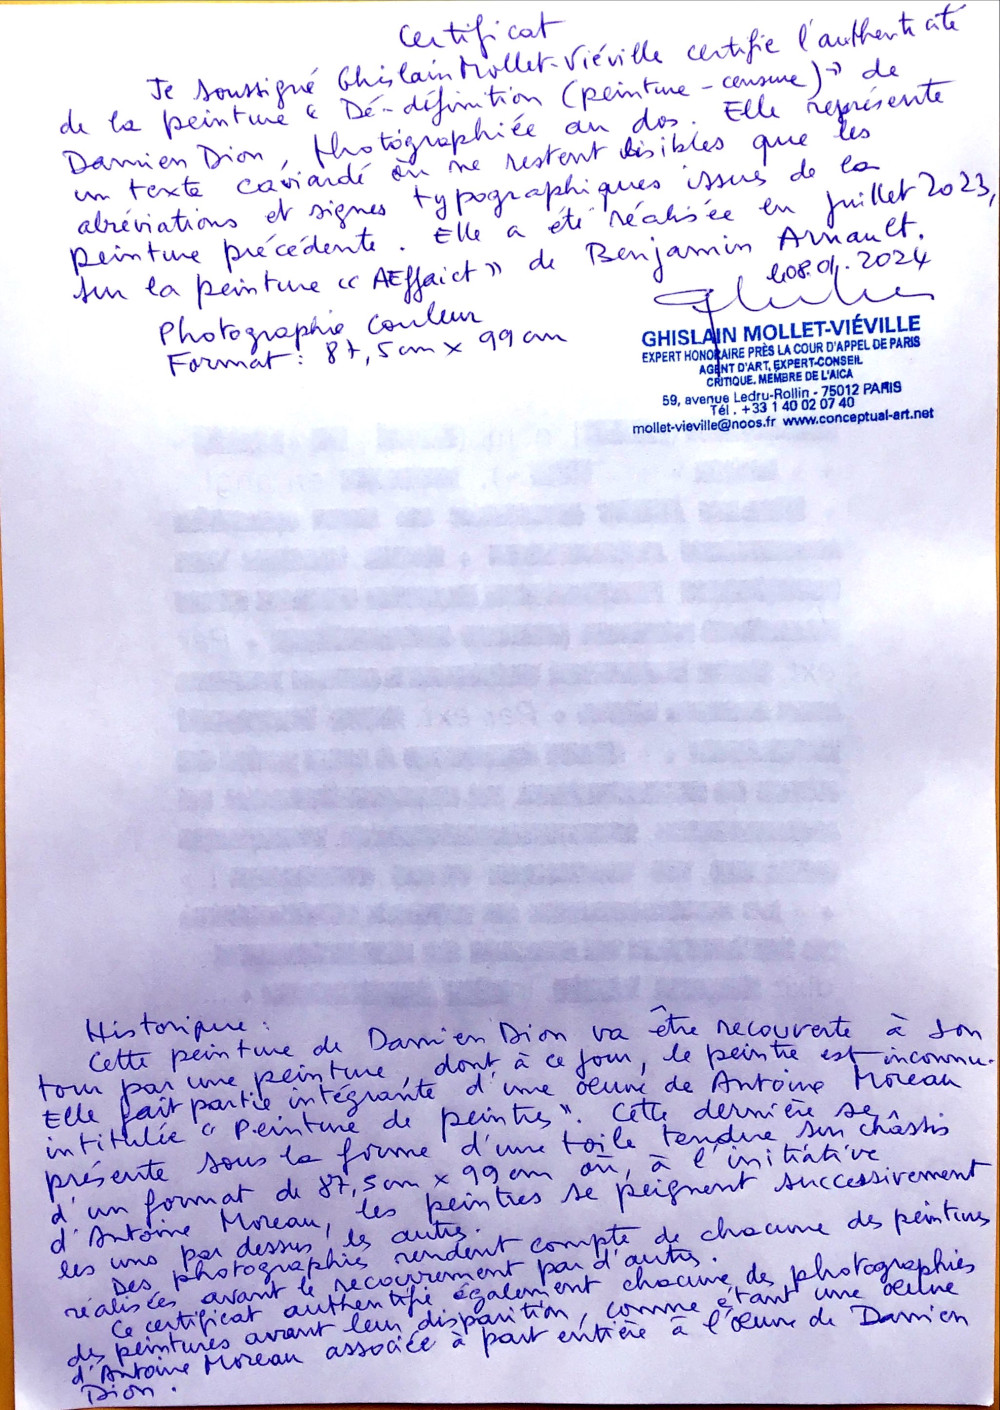 Certificat
Je soussigné Ghislain Mollet-Viéville certifie l'authenticité
de la peinture « Dé-définition (peinture-censure) » de
Damien Dion, photographiée au dos. Elle représente
un texte caviardé où ne restent lisibles que les
abréviations et signes typographiques issus de la
peinture précédente. Elle a été réalisée en juillet 2023,
sur la peinture « AEffaict » de Benjamin Arnault.
le 08.01.2024
Photographie couleur
Format : 87,5 cm x 99 cm
GHISLAIN MOLLET-VIÉVILLE
EXPERT HONORAIRE PRÈS LA COUR D'APPEL DE PARIS
AGENT D'ART, EXPERT-CONSEIL
CRITIQUE, MEMBRE DE L'AICA
59, avenue Ledru-Rollin - 75012 PARIS
Tél . +33 1 40 02 07 40
mollet-vieville@noos.fr www.conceptual-art.net
Historique :
Cette peinture de Damien Dion va être recouverte à son
tour par une peinture, dont, à ce jour, le peintre est inconnu.
Elle fait partie intégrante d'une œuvre de Antoine Moreau
intitulée « Peinture de peintres ». Cette dernière se
présente sous la forme d'une toile tendue sur châssis
d'un format de 87,5 cm x 99 cm où, à l'initiative
d'Antoine Moreau, les peintres se peignent successivement
les uns par dessus, les autres.
Des photographies rendent compte de chacune des peintures
réalisées avant le recouvrement par d'autres.
Ce certificat authentifie également chacune des photographies
des peintures avant leur disparition, comme étant une œuvre
d'Antoine Moreau associée à part entière à l'œuvre de Damien
Dion.